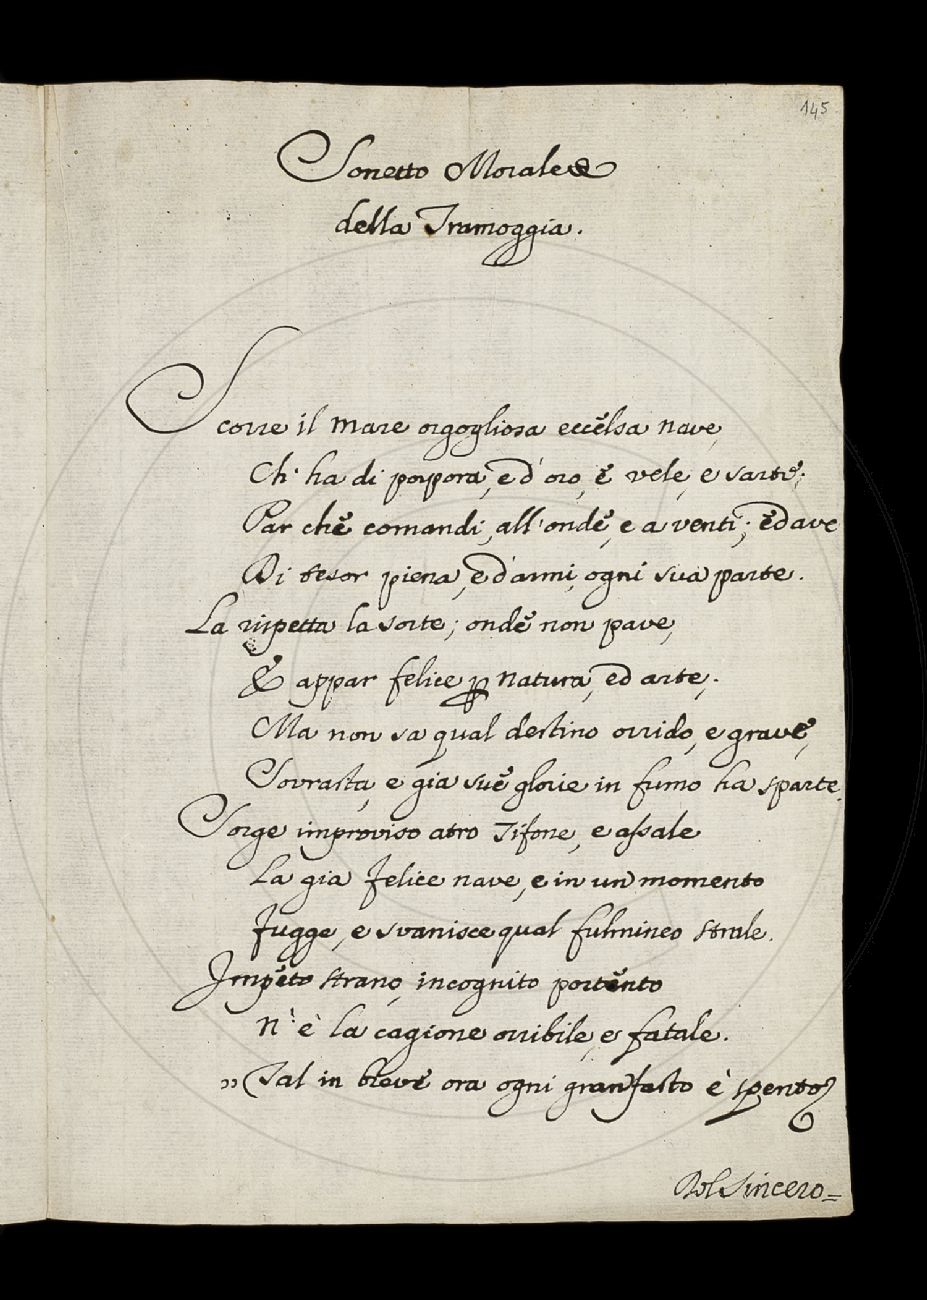 145
Sonetto Morale
della Tramoggia.
Scorre il mare orgogliosa eccelsa nave,
Ch' ha di porpora, e d'oro, e vele, e sarte;
Par che comandi, all'onde, e a venti; ed ave
Di tesor piena, e d'armi, ogni sua parte.
La rispetta la sorte; onde non pave,
E appar felice p natura, ed arte;
Ma non sa qual destino orrido, e grave,
Sovrasta, e gia sue glorie in fumo ha sparte.
Sorge improviso atro Tifone, e assale
La gia felice nave, e in un momento
Fugge, e svanisce qual fulmineo strale.
Impeto strano, incognito portento
N' è la cagione orribile, e fatale.
" Tal in breve ora ogni gran fasto è spento
Sincero=